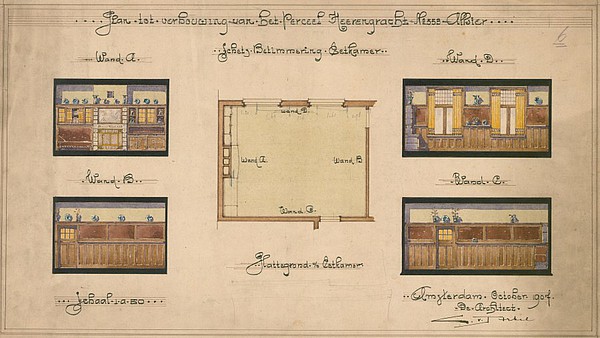 Plan tot verbouwing van het Perceel Heerengracht
6
Schets Betimmering Eetkamer
Wand A.
Wand D.
Wand D.
Wand A.
Wand B
Wand C.
Wand B.
Wand C.
Plattegrond Eetkamer
Schaal 1 a 50
Amsterdam October 1904
De Architect